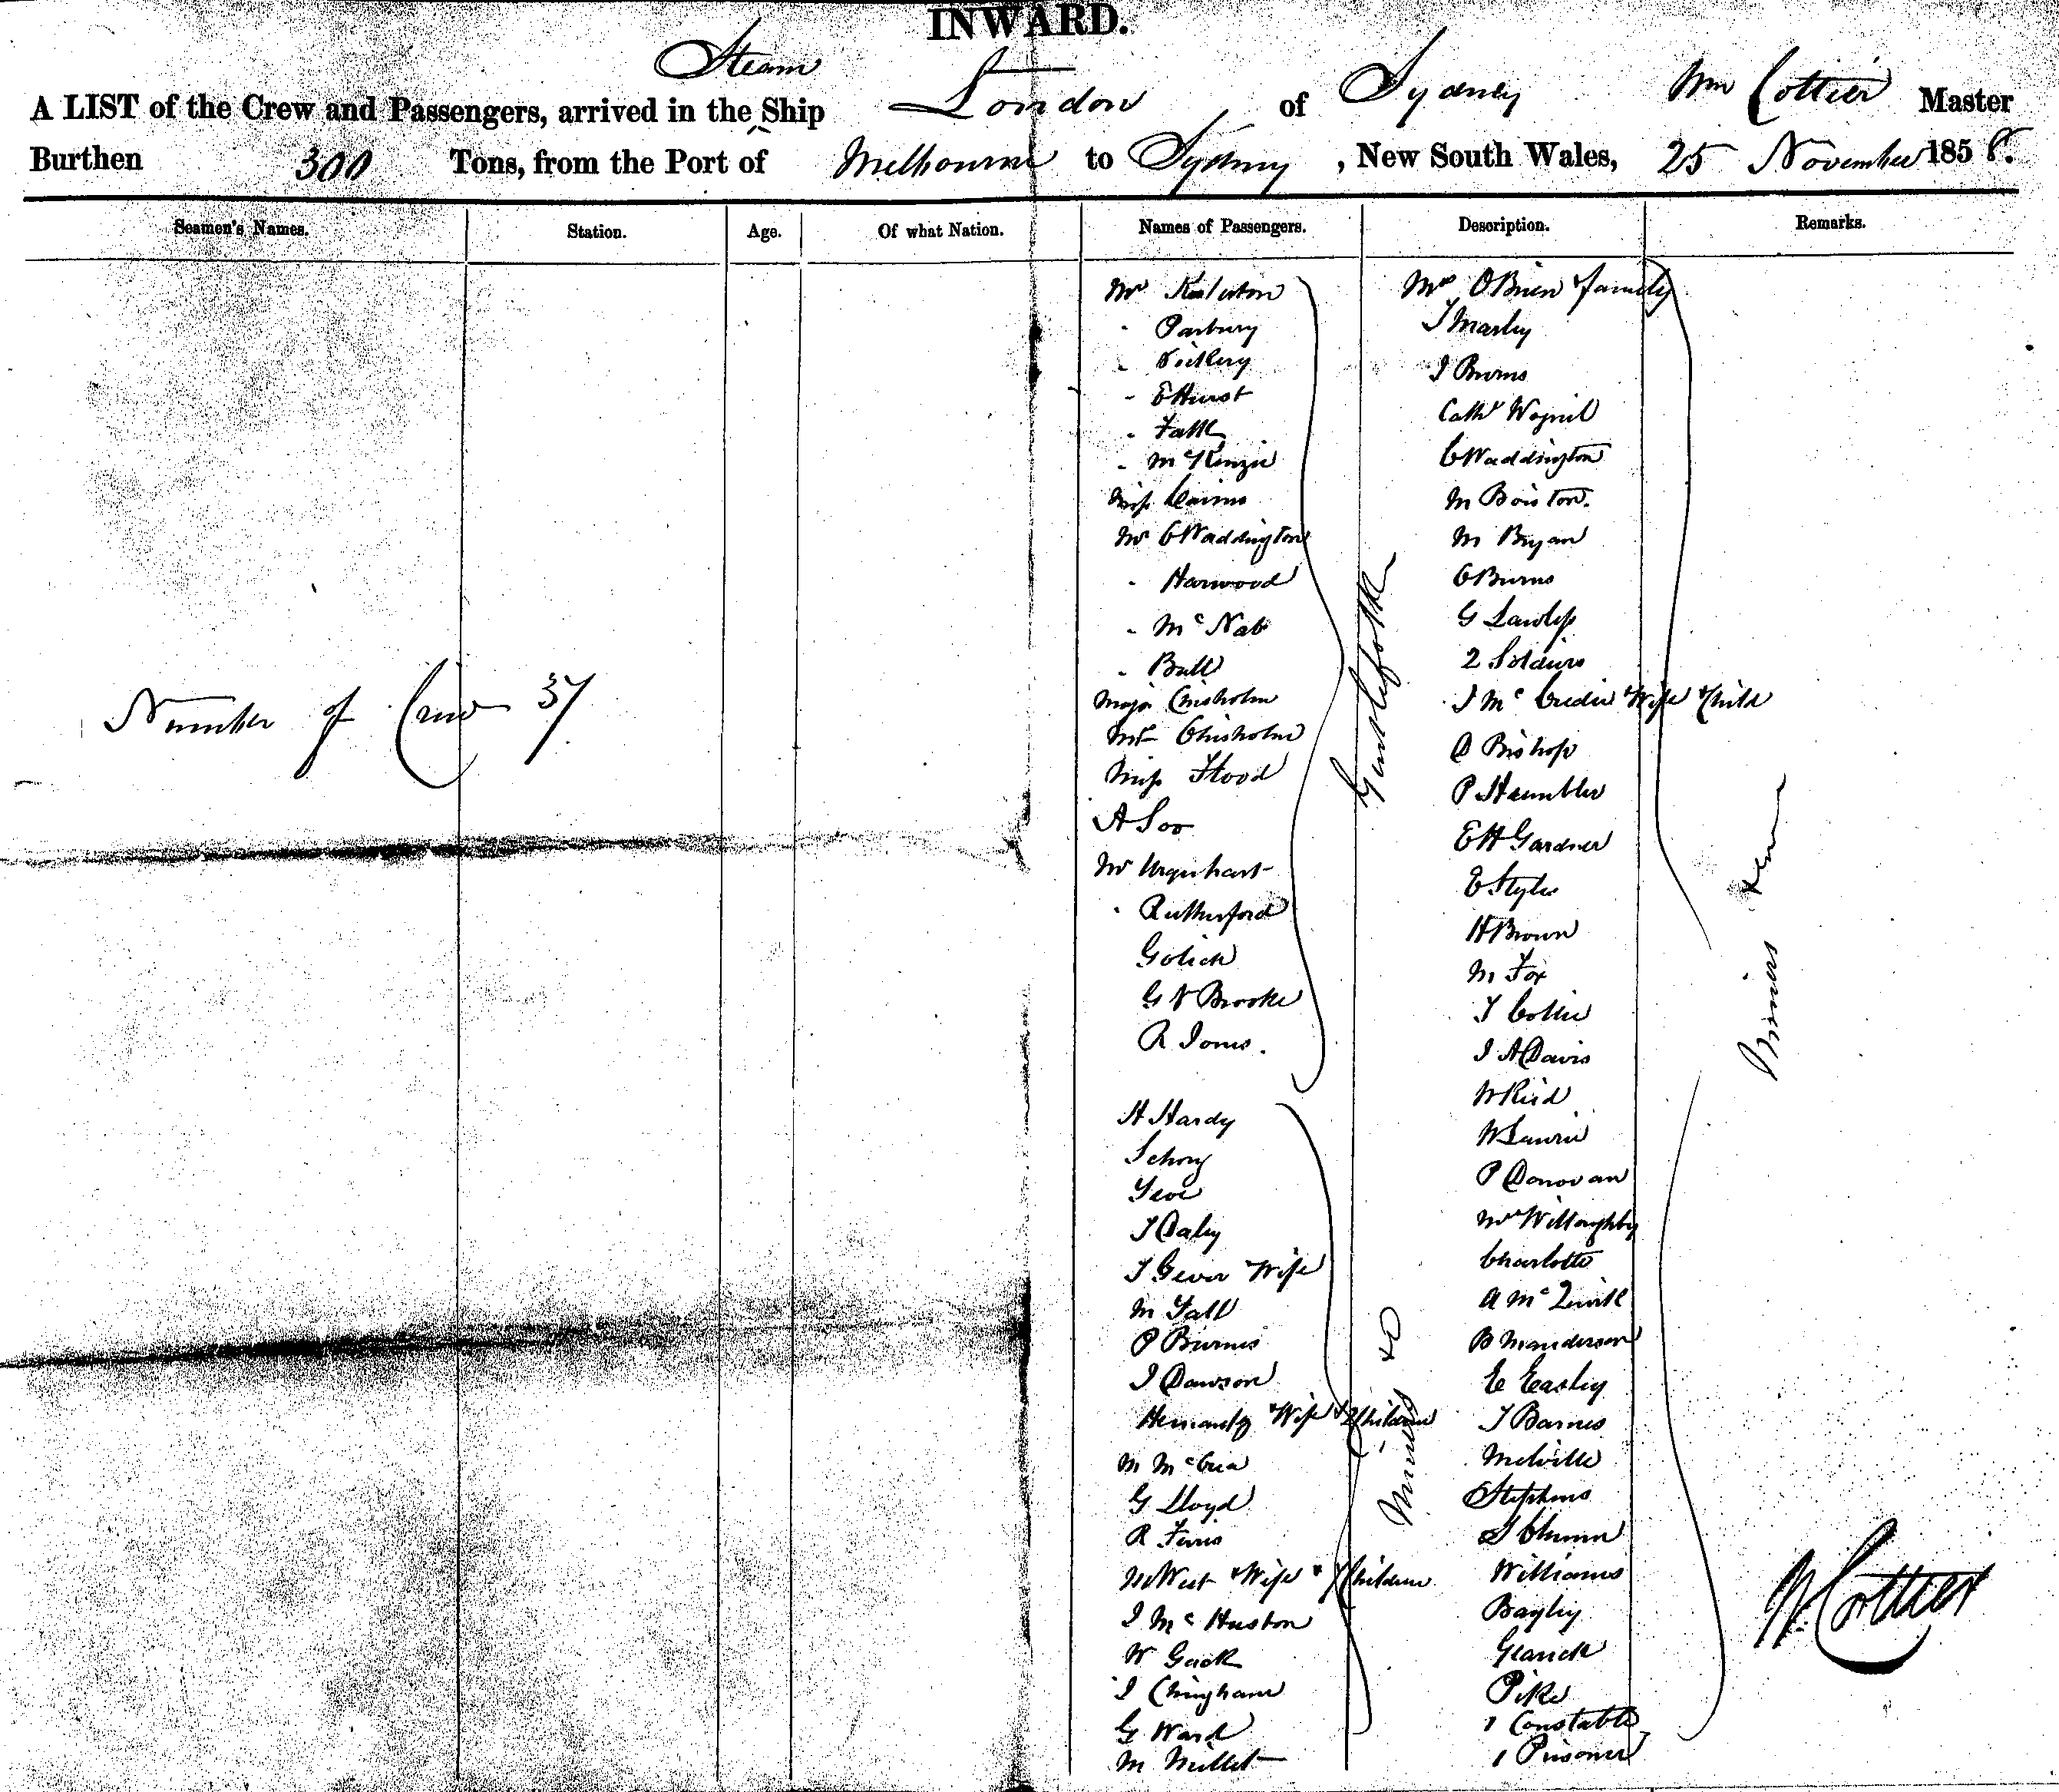 INWARD.
Steam
A LIST of the Crew and Passengers, arrived in the Ship London of Sydney Wm Cottier Master
Burthen 300 Tons, from the Port of Melbourne to Sydney, New South Wales, 25 November 1858.
Seamen's Names. Station. Age. Of what Nation. Names of Passengers. Description. Remarks.
Number of Crew 37
Mr
" Parbury
" Vickery
" E Hurst
"
" McKenzie
Miss Cairns
Mr C Waddington
" Harwood
" McNab
" Bull
Major Chisholm
Mrs Chisholm
Miss Flood
A Soo
Mr Urquhart
" Rutherford
Golick
G V Brooke
R Jones.
Gentlefolk
H Hardy
Schory
J Daley
J Gever Wife
M Fall
P Burnes
J Dawson
Wife & 2 Children
M McCrea
G Lloyd
R Ferris
M West & Wife & 7 Children
J McHuston
W Gack
J Chingham
G Ward
M Millet
Miners &c
Mrs O'Brien & family
J Marley
J Burns
Cathe
C Waddington
M Boiston.
M Bryan
C Burns
G Lawless
2 Soldiers
J McCredie Wife & Child
D Bishop
P Humbler
E H Gardner
E Styles
H Brown
M Fox
T Collie
J A Davis
W Reid
W Lawrie
P Donovan
Mrs Willoughby
Charlotte
A Mc
B Manderson
E Easley
J Barnes
Melville
Stephens
Williams
Bayley
Glanick
Pike
1 Constable
1 Prisoner
Miners
W. Cottier